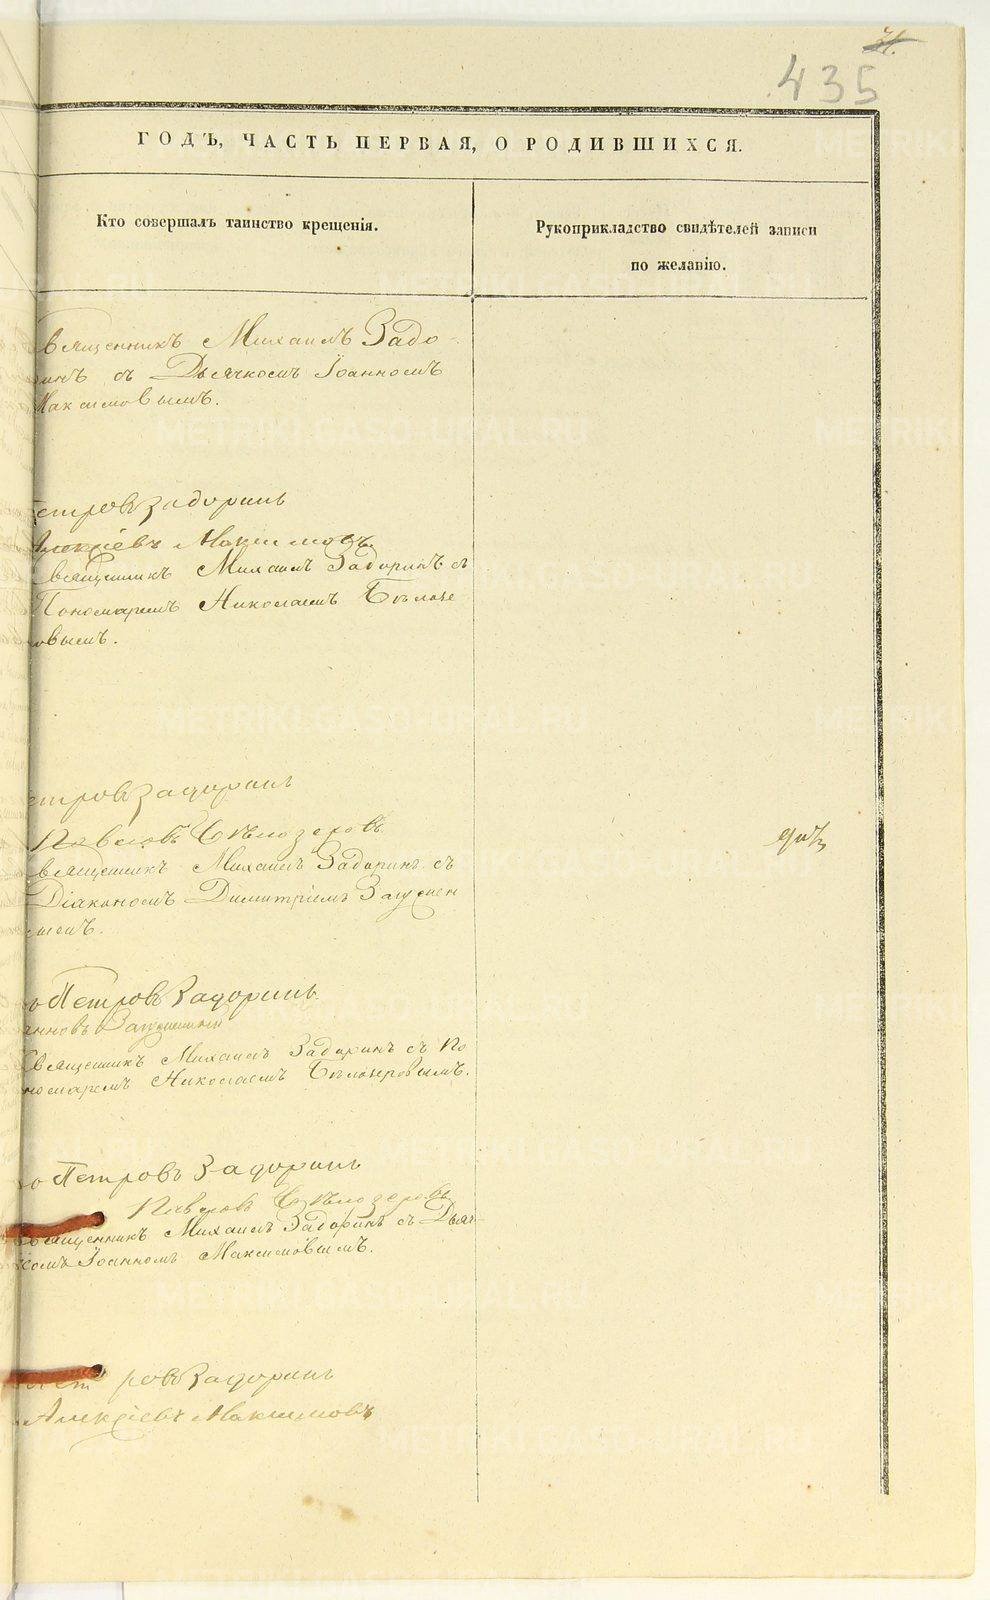 31.
435
ГОДЪ, ЧАСТЬ ПЕРВАЯ, О РОДИВШИХСЯ.
Кто совершалъ таинство крещенія.
Рукоприкладство свидѣтелей записи
по желанію.
Священникъ Михаилъ Задо-
ринъ съ Дьячкомъ Іоанномъ
Максимовымъ.
Петровъ Задоринъ
Алексіевъ Максимовъ
Священникъ Михаилъ Задоринъ съ
Пономаремъ Николаемъ Бѣлозе
ровымъ.
Петровъ Задоринъ
Павловъ Бѣлозеровъ
Священникъ Михаилъ Задоринъ съ
Діакономъ Димитріемъ
о Петровъ Задоринъ
анновъ
Священникъ Михаилъ Задоринъ съ По
номаремъ Николаемъ Бѣлозеровымъ.
о Петровъ Задоринъ
Павловъ Бѣлозеровъ
Священникъ Михаилъ Задоринъ съ Дьяч-
комъ Іоанномъ Максимовымъ.
Петровъ Задоринъ
Алексіевъ Максимовъ
METRIKI.GASO-URAL.RU